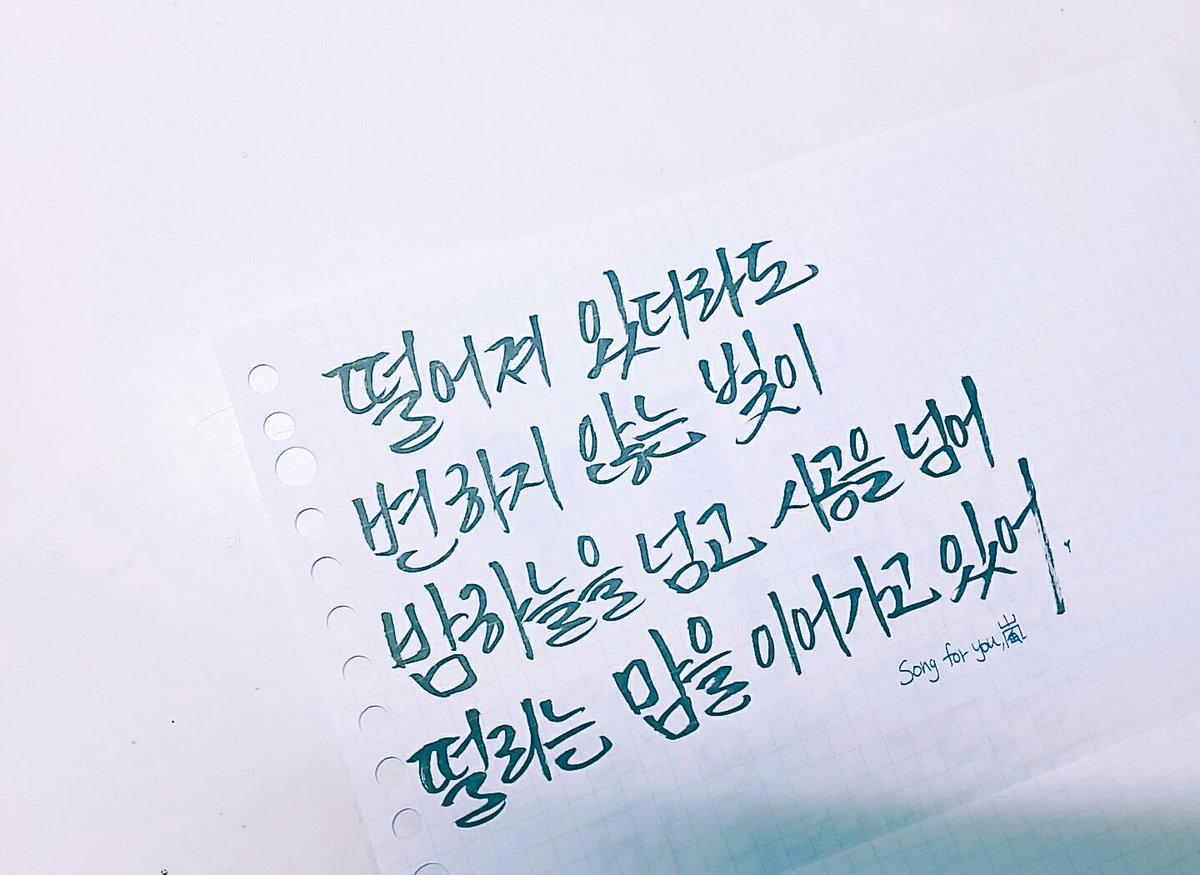 떨어져 있더라도
변하지 않는 빛이
밤하늘을 넘고 시공을 넘어
떨리는 맘을 이어가고 있어.
Song for you, 嵐